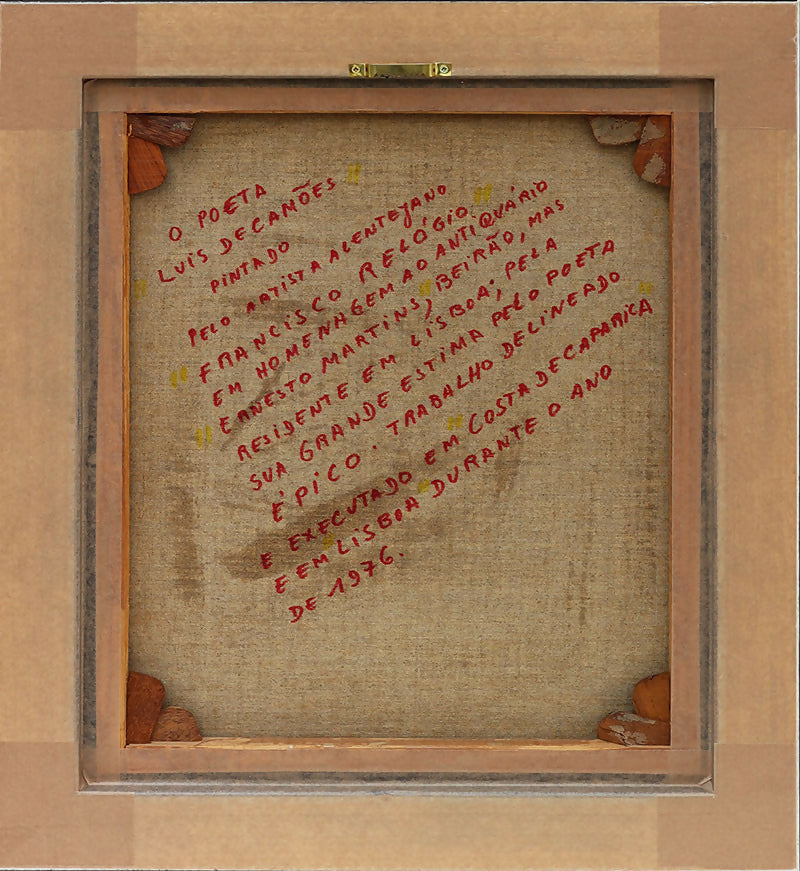 O POETA
LUIS DE CAMÕES "
" PINTADO
PELO ARTISTA ALENTEJANO
" FRANCISCO RELÓGIO "
EM HOMENAGEM AO ANTIQUÁRIO
" ERNESTO MARTINS, " BEIRÃO, MAS
RESIDENTE EM LISBOA; PELA
SUA GRANDE ESTIMA PELO POETA
ÉPICO. TRABALHO DELINEADO
E EXECUTADO EM " COSTA DE CAPARICA "
E EM " LISBOA " DURANTE O ANO
DE 1976.